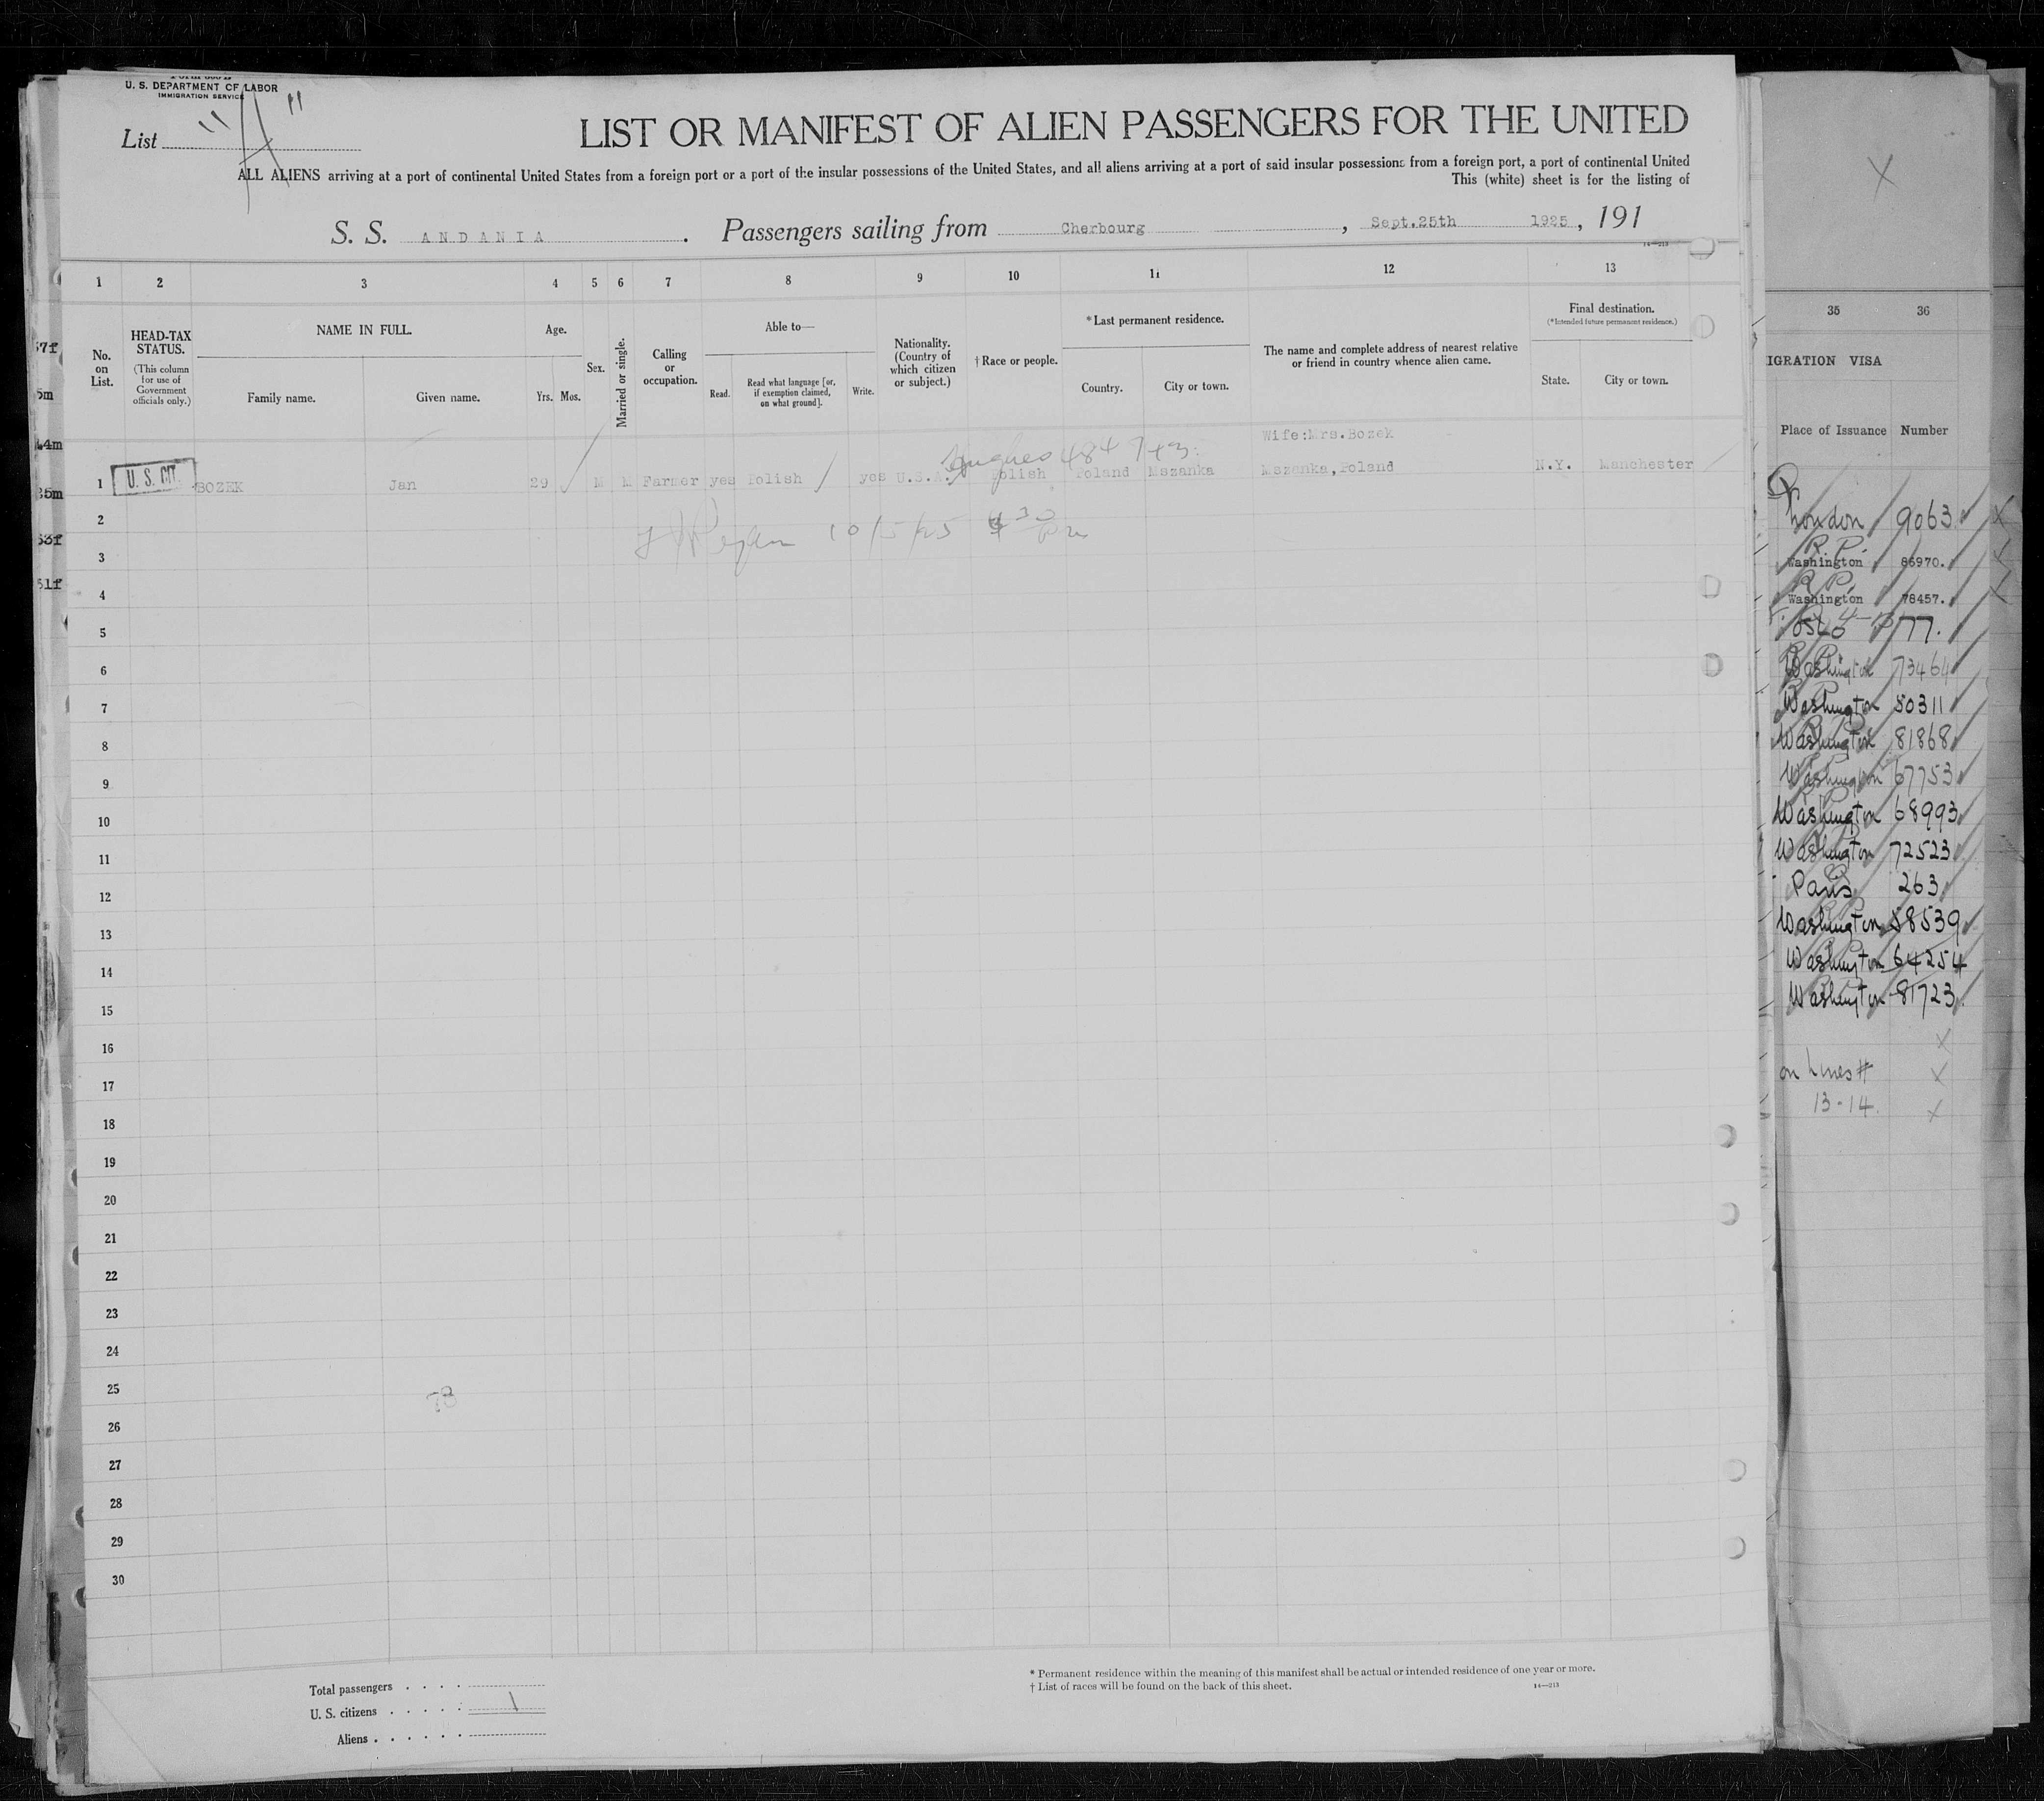 U. S. DEPARTMENT OF LABOR
IMMIGRATION SERVICE
List "A"
LIST OR MANIFEST OF ALIEN PASSENGERS FOR THE UNITED
ALL ALIENS arriving at a port of continental United States from a foreign port or a port of the insular possessions of the United States, and all aliens arriving at a port of said insular possessions from a foreign port, a port of continental United
This (white) sheet is for the listing of
S. S. ANDANIA . Passengers sailing from Cherbourg , Sept.25th 1925 , 191
14—213
1 2 3 4 5 6 7 8 9 10 11 12 13
No. on List.
HEAD-TAX STATUS.
(This column for use of Government officials only.)
NAME IN FULL.
Family name. Given name.
Age.
Yrs. Mos.
Sex.
Married or single.
Calling or occupation.
Able to—
Read. Read what language [or, if exemption claimed, on what ground]. Write.
Nationality. (Country of which citizen or subject.)
† Race or people.
*Last permanent residence.
Country. City or town.
The name and complete address of nearest relative or friend in country whence alien came.
Final destination.
(*Intended future permanent residence.)
State. City or town.
Wife:Mrs.Bozek
1 U. S. CIT. BOZEK Jan 29 M M Farmer yes Polish yes U.S.A. Polish Poland Mszanka Mszanka,Poland N.Y. Manchester
10/5/25
2
3
4
5
6
7
8
9
10
11
12
13
14
15
16
17
18
19
20
21
22
23
24
25
78
26
27
28
29
30
Total passengers . . . .
U. S. citizens . . . . . 1
Aliens . . . . . .
* Permanent residence within the meaning of this manifest shall be actual or intended residence of one year or more.
† List of races will be found on the back of this sheet.
14—213
35 36
IGRATION VISA
Place of Issuance Number
London 9063
R.P.
Washington 86970.
R.P.
Washington 78457.
Oslo 77.
Washington 73461
Washington 80311
Washington 81868
Washington 67753
Washington 68993
Washington 72523
Paris 263
Washington 58539
Washington 64254
Washington 81723
on Lines #
13-14.
57f
5m
44m
35m
53f
51f